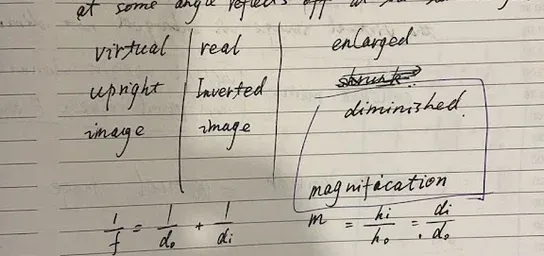 at some angle reflects off at
virtual real enlarged
upright Inverted shrunk
image image diminished.
magnification
1/f = 1/do + 1/di m = hi/ho = di/do